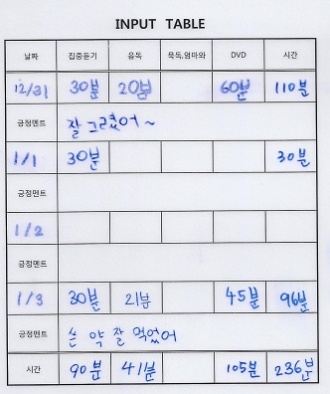 INPUT TABLE
날짜 집중듣기 음독 묵독,엄마와 DVD 시간
12/31 30분 20분 60분 110분
긍정멘트 잘 그렸어~
1/1 30분 30분
긍정멘트
1/2
긍정멘트
1/3 30분 21분 45분 96분
긍정멘트 손 약 잘 먹었어
시간 90분 41분 105분 236분